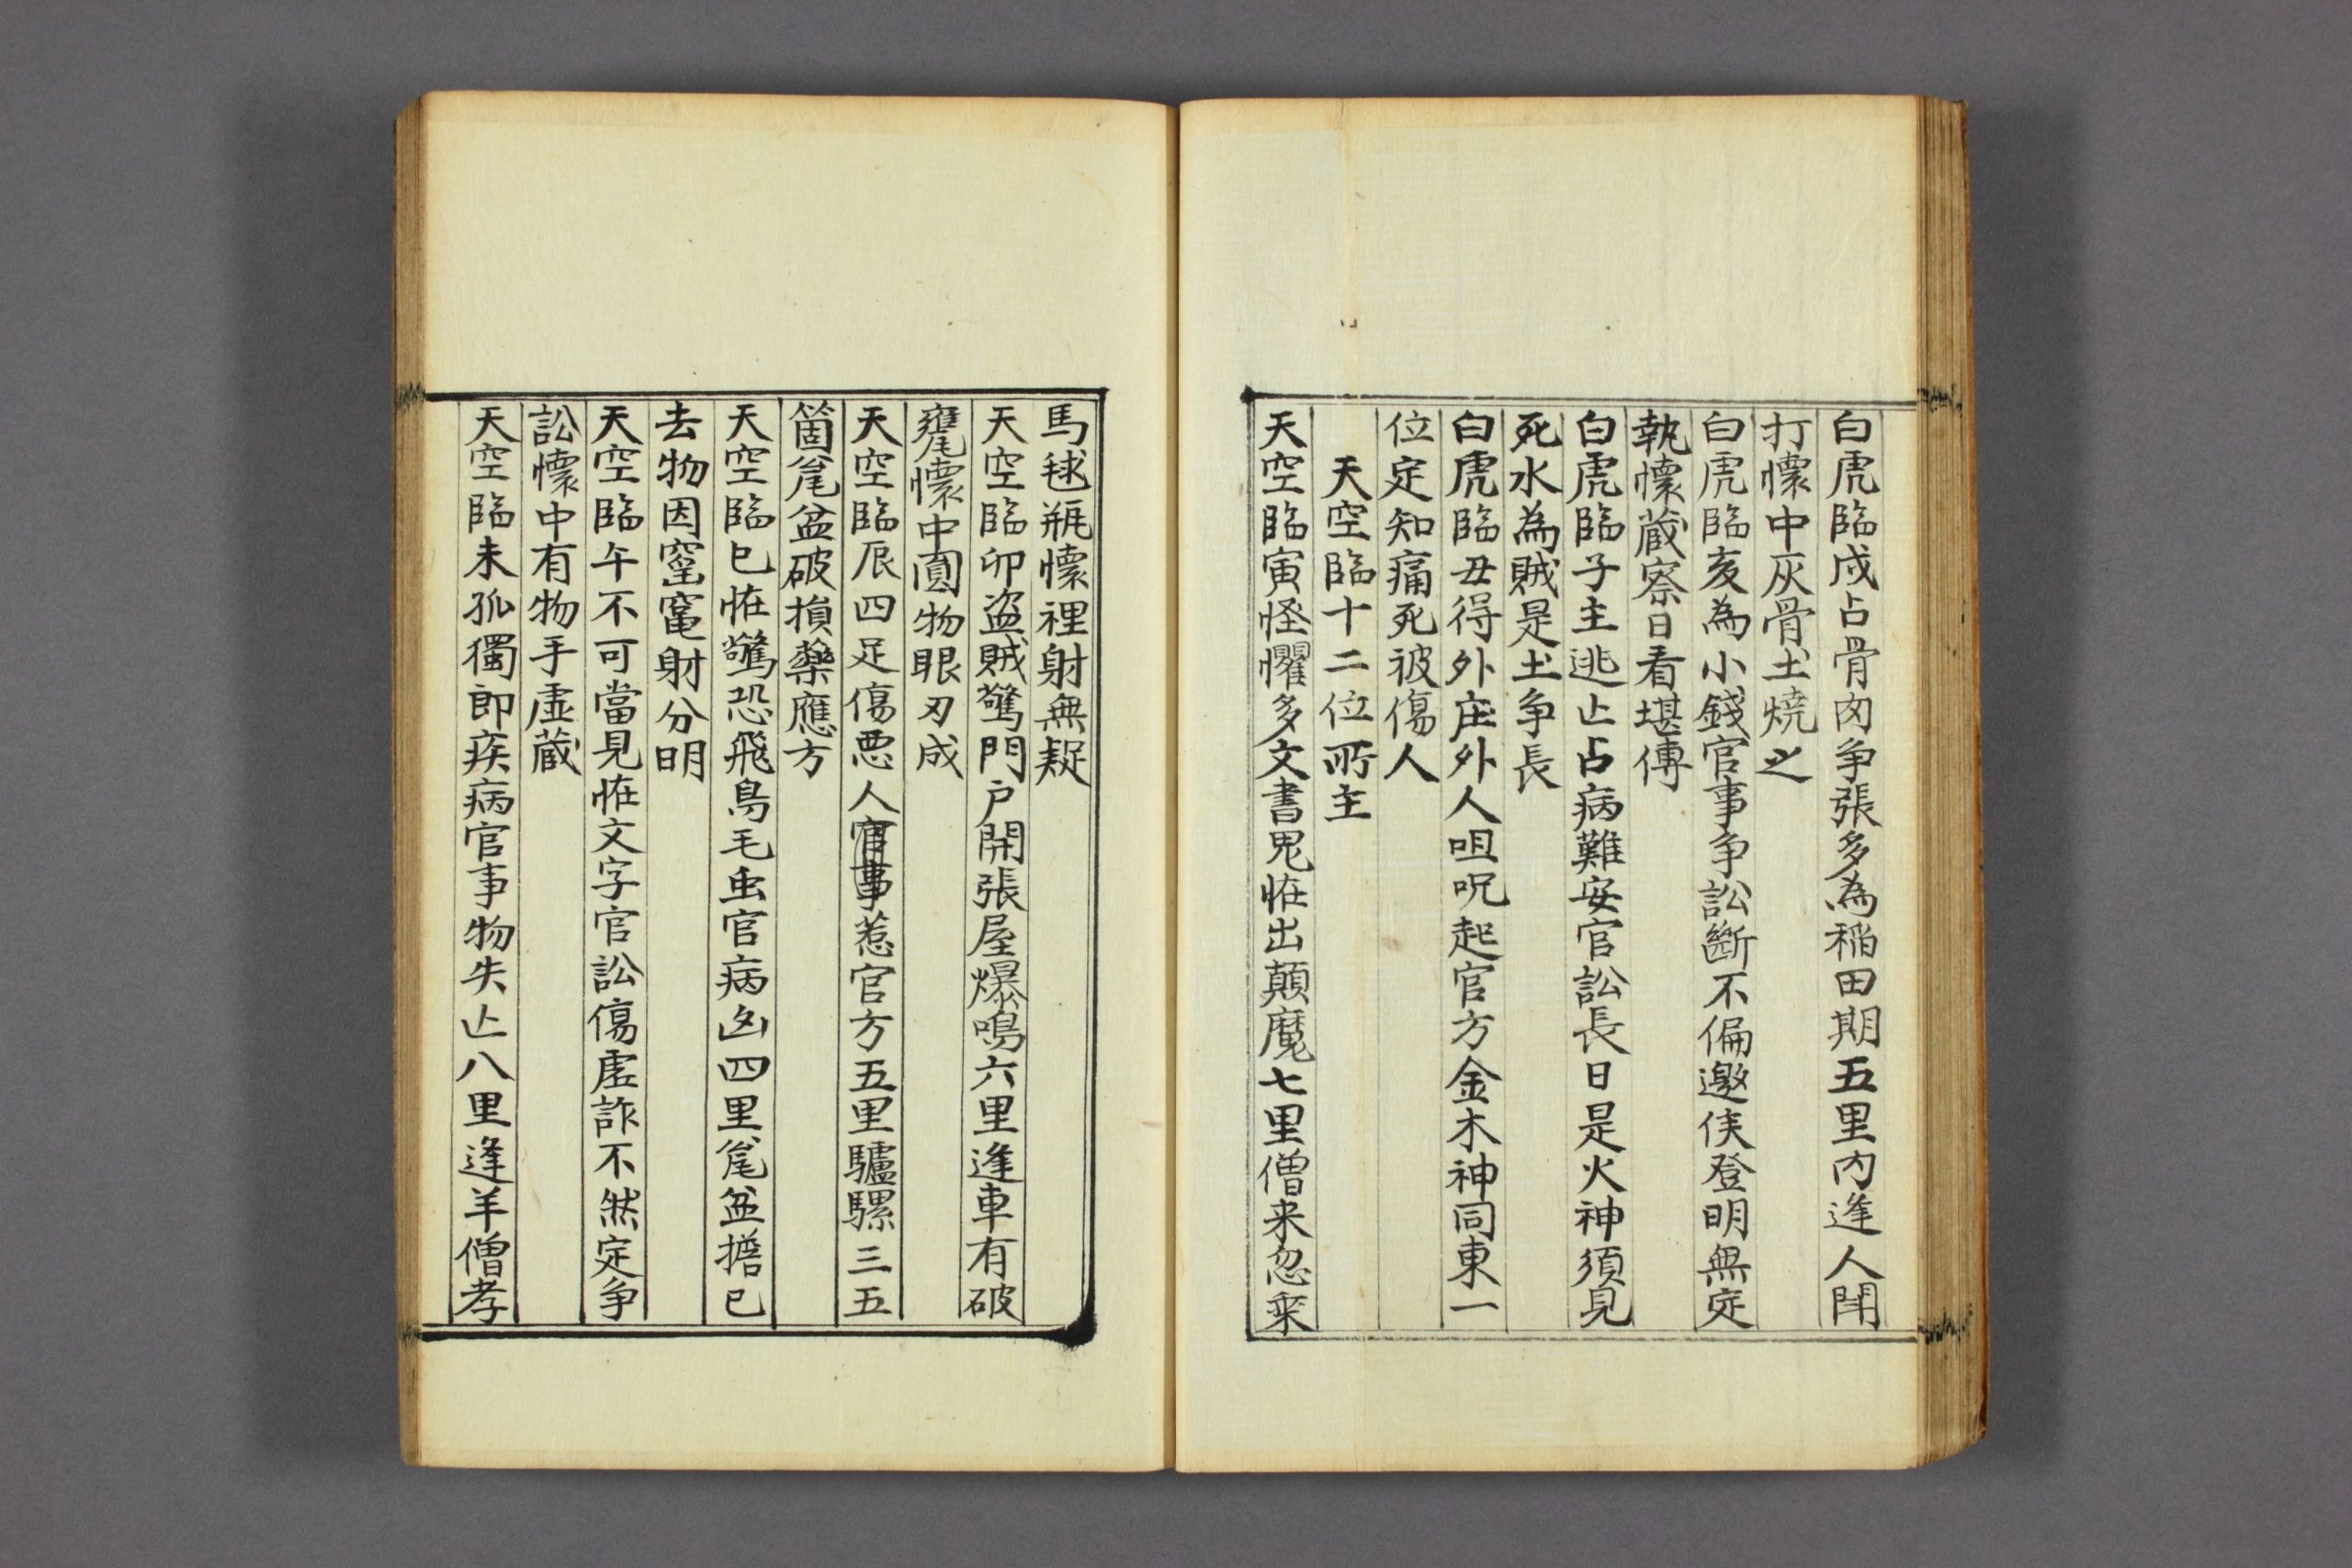 白虎臨戌占骨肉争張多為稲田期五里内逢人鬪
打懷中灰骨土焼之
白虎臨亥為小錢官事争訟斷不偏邀侯登明無定
執懷蔵察日看堪傳
白虎臨子主逃亡占病難安官訟長日是火神須見
死水為賊是土争長
白虎臨丑得外庄外人咀呪起官方金木神同東一
位定知痛死被傷人
天空臨十二位所主
天空臨寅怪懼多文書鬼恠出顛魔七里僧来忽乗
馬毬瓶懷裡射無疑
天空臨卯盗賊驚門戸開張屋爆鳴六里逢車有破
甕懷中圓物眼刃成
天空臨辰四足傷悪人官事惹官方五里驢騾三五
箇瓮盆破損藥應方
天空臨巳恠驚恐飛鳥毛虫官病凶四里瓮盆擔已
去物因窰竃射分明
天空臨午不可當見恠文字官訟傷虗詐不然定争
訟懷中有物手虚蔵
天空臨未孤獨郎疾病官事物失亡八里逢羊僧孝